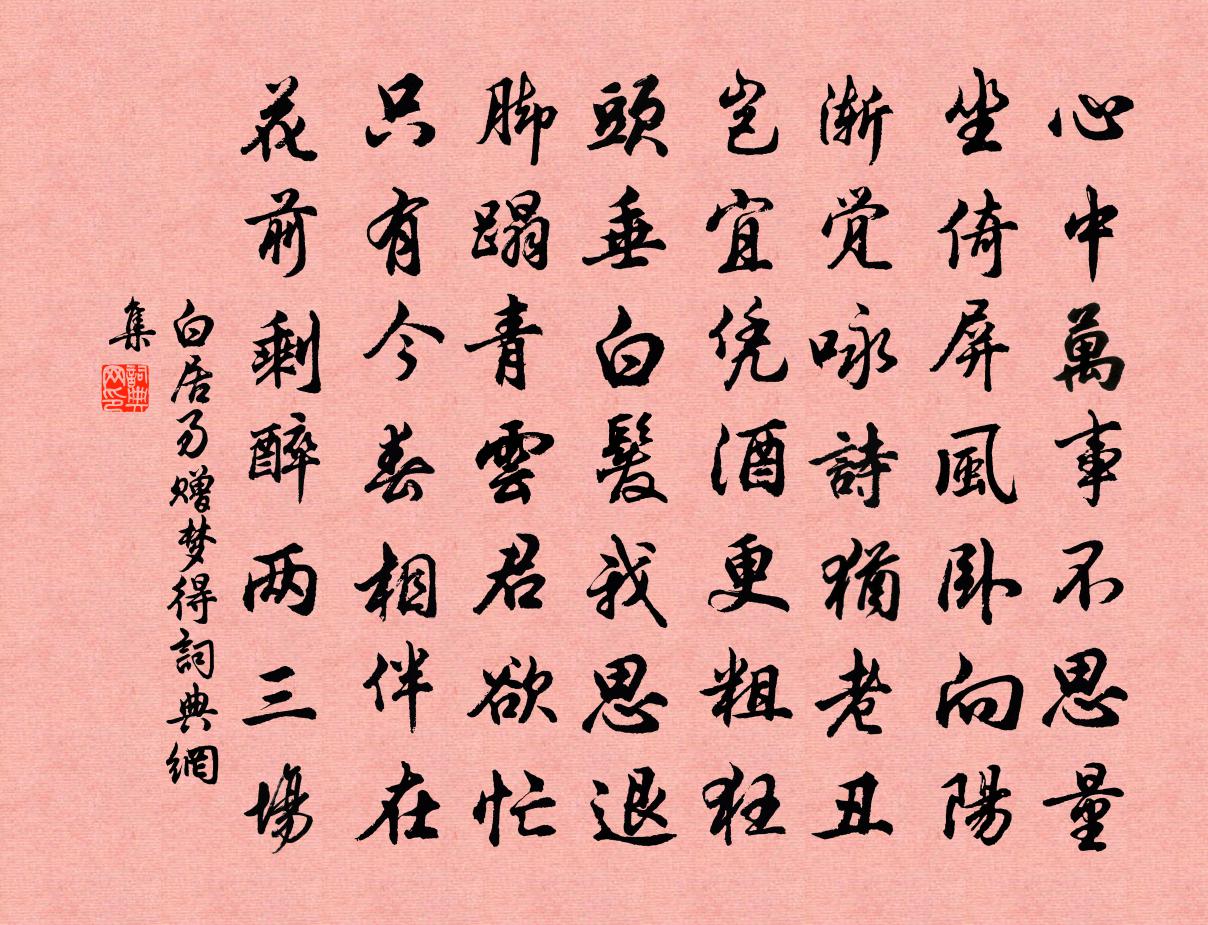 心中萬事不思量
坐倚屏風卧向陽
漸覺咏詩猶老丑
豈宜凭酒更粗狂
頭垂白髮我思退
脚蹋青雲君欲忙
只有今春相伴在
花前剩醉两三場
白居易赠梦得詞典網
集
詞典网印